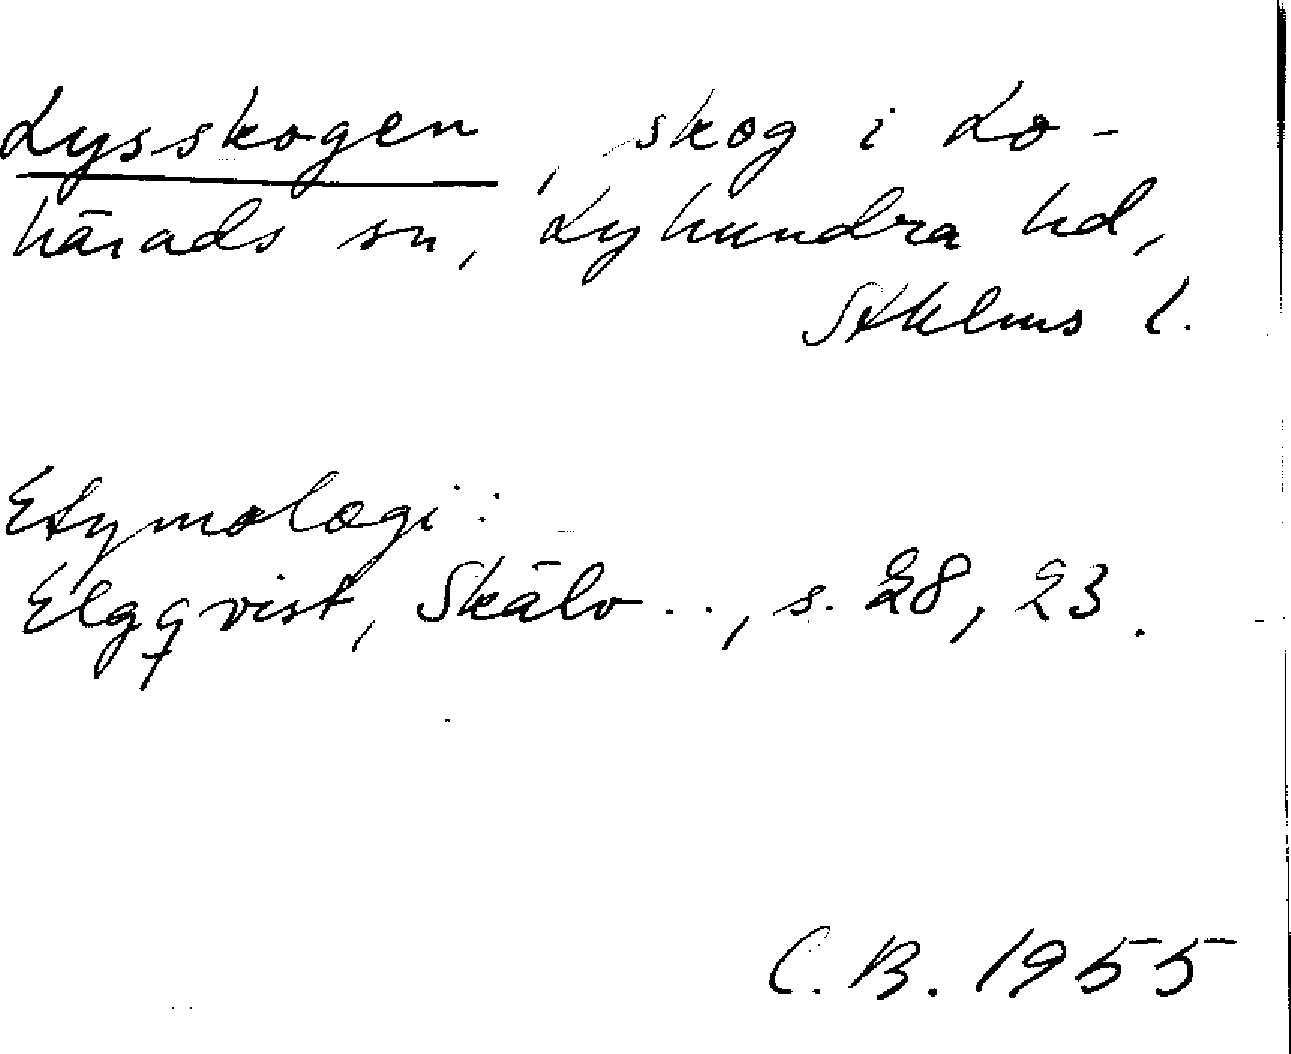 Lysskogen, skog i Lo-
härads sn, Lyhundra hd,
Sthlms l.
Etymologi:
Elgqvist, Skälv..., s. 28, 23.
C.B. 1955